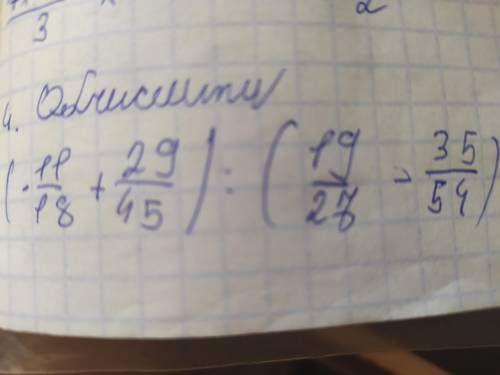 3
2
4. Обчислити
(11/18 + 29/45) : (19/27 - 35/54)